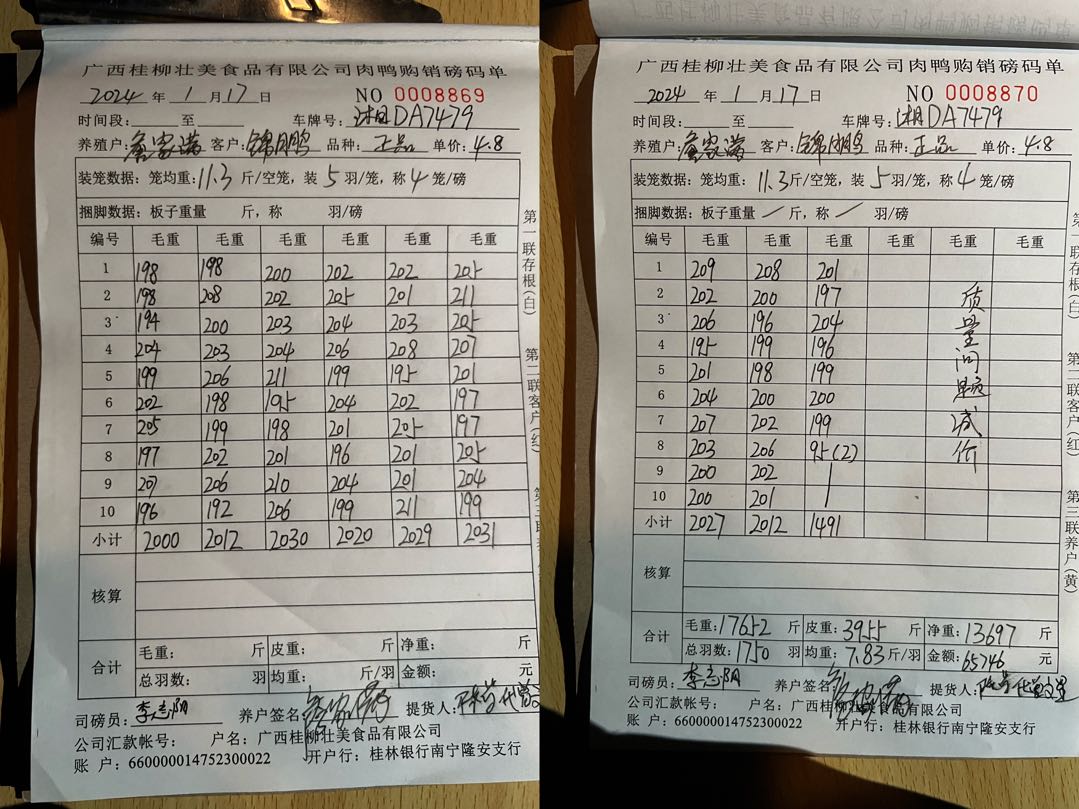 广西桂柳壮美食品有限公司肉鸭购销磅码单
2024 年 1 月 17 日 NO 0008869
时间段: 至 车牌号: 湘DA7479
养殖户: 客户: 锦鹏 品种: 正品 单价: 4.8
装笼数据: 笼均重: 11.3 斤/空笼, 装 5 羽/笼, 称 4 笼/磅
捆脚数据: 板子重量 斤, 称 羽/磅
编号 毛重 毛重 毛重 毛重 毛重 毛重
1 198 198 200 202 202 205
2 198 208 202 205 201 211
3 194 200 203 204 203 205
4 204 203 204 206 208 207
5 199 206 211 199 195 201
6 202 198 195 204 202 197
7 205 199 198 201 205 197
8 197 202 201 196 201 205
9 207 206 210 204 201 204
10 196 192 206 199 211 199
小计 2000 2012 2030 2020 2029 2031
核算
合计 毛重: 斤 皮重: 斤 净重: 斤
总羽数: 羽 均重: 斤/羽 金额: 元
司磅员: 李志阴 养户签名: 提货人:
公司汇款帐号: 户名: 广西桂柳壮美食品有限公司
账 户: 660000014752300022 开户行: 桂林银行南宁隆安支行
第一联存根(白)
第二联客户(红)
广西桂柳壮美食品有限公司肉鸭购销磅码单
2024 年 1 月 17 日 NO 0008870
时间段: 至 车牌号: 湘DA7479
养殖户: 客户: 锦鹏 品种: 正品 单价: 4.8
装笼数据: 笼均重: 11.3 斤/空笼, 装 5 羽/笼, 称 4 笼/磅
捆脚数据: 板子重量 / 斤, 称 / 羽/磅
编号 毛重 毛重 毛重 毛重 毛重 毛重
1 209 208 201
2 202 200 197
3 206 196 204
4 195 199 196
5 201 198 199
6 204 200 200
7 207 202 199
8 203 206 95(2)
9 200 202
10 200 201
小计 2027 2012 1491
质量问题减价
核算
合计 毛重: 17652 斤 皮重: 3955 斤 净重: 13697 斤
总羽数: 1750 羽 均重: 7.83 斤/羽 金额: 65746 元
司磅员: 李志阴 养户签名: 提货人:
公司汇款帐号: 户名: 广西桂柳壮美食品有限公司
账 户: 660000014752300022 开户行: 桂林银行南宁隆安支行
第一联存根(白)
第二联客户(红)
第三联养户(黄)